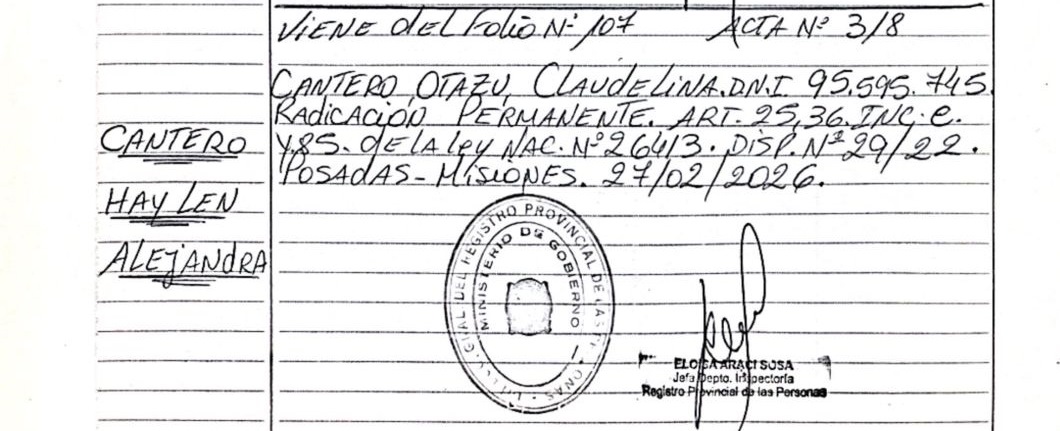 VIENE del Folio Nº 107 ACTA Nº 318
CANTERO OTAZU, CLAUDELINA. D.N.I 95.595.745.
RADICACIÓN PERMANENTE. ART. 25,36. INC. e.
Y.85. de LA Ley NAC. Nº 26413. DISP. Nº 29/22.
POSADAS - MISIONES. 27/02/2026.
CANTERO
HAYLEN
ALEJANDRA
REGISTRO PROVINCIAL DE LAS
MINISTERIO DE GOBIERNO
ELOISA ARACI SOSA
Jefa Depto. Inspectoría
Registro Provincial de las Personas